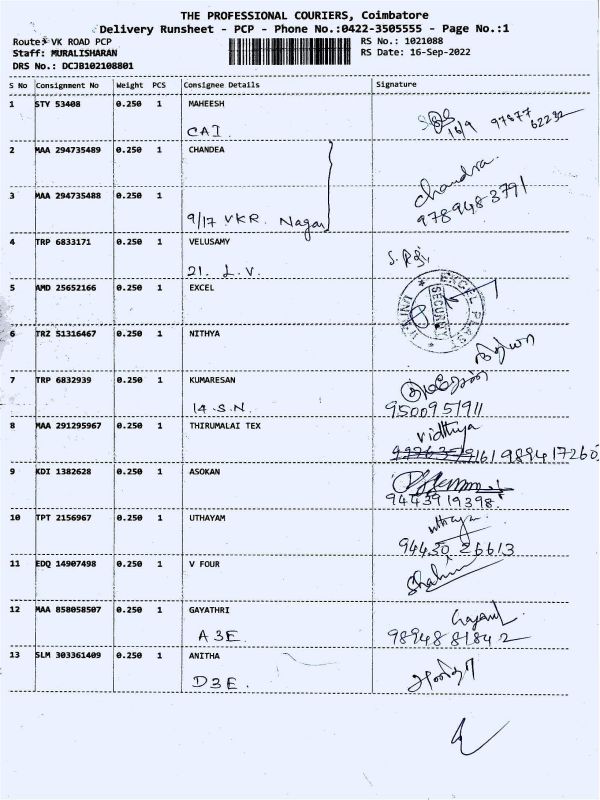 THE PROFESSIONAL COURIERS, Coimbatore
Delivery Runsheet - PCP - Phone No.:0422-3505555 - Page No.:1
Route: VK ROAD PCP
RS No.: 1021088
Staff: MURALISHARAN
RS Date: 16-Sep-2022
DRS No.: DCJB102108801
S No Consignment No Weight PCS Consignee Details Signature
1 STY 53408 0.250 1 MAHEESH
CAI. 16/9 97877 62232
2 MAA 294735489 0.250 1 CHANDEA
Chandra.
3 MAA 294735488 0.250 1
9/17 VKR. Nagar 9789483791
4 TRP 6833171 0.250 1 VELUSAMY
21. L.V.
5 AMD 25652166 0.250 1 EXCEL
EXCEL PLAST
SECURITY
6 TRZ 51316467 0.250 1 NITHYA
நித்யா
7 TRP 6832939 0.250 1 KUMARESAN
குமரேசன்
14.S.N. 9500951911
8 MAA 291295967 0.250 1 THIRUMALAI TEX
vidhya
9894417260
9 KDI 1382628 0.250 1 ASOKAN
9443919398.
10 TPT 2156967 0.250 1 UTHAYAM
uthaya
94430 26613
11 EDQ 14907498 0.250 1 V FOUR
12 MAA 858058507 0.250 1 GAYATHRI
A3E. 9894881842
13 SLM 303361409 0.250 1 ANITHA
D3E. அனிதா